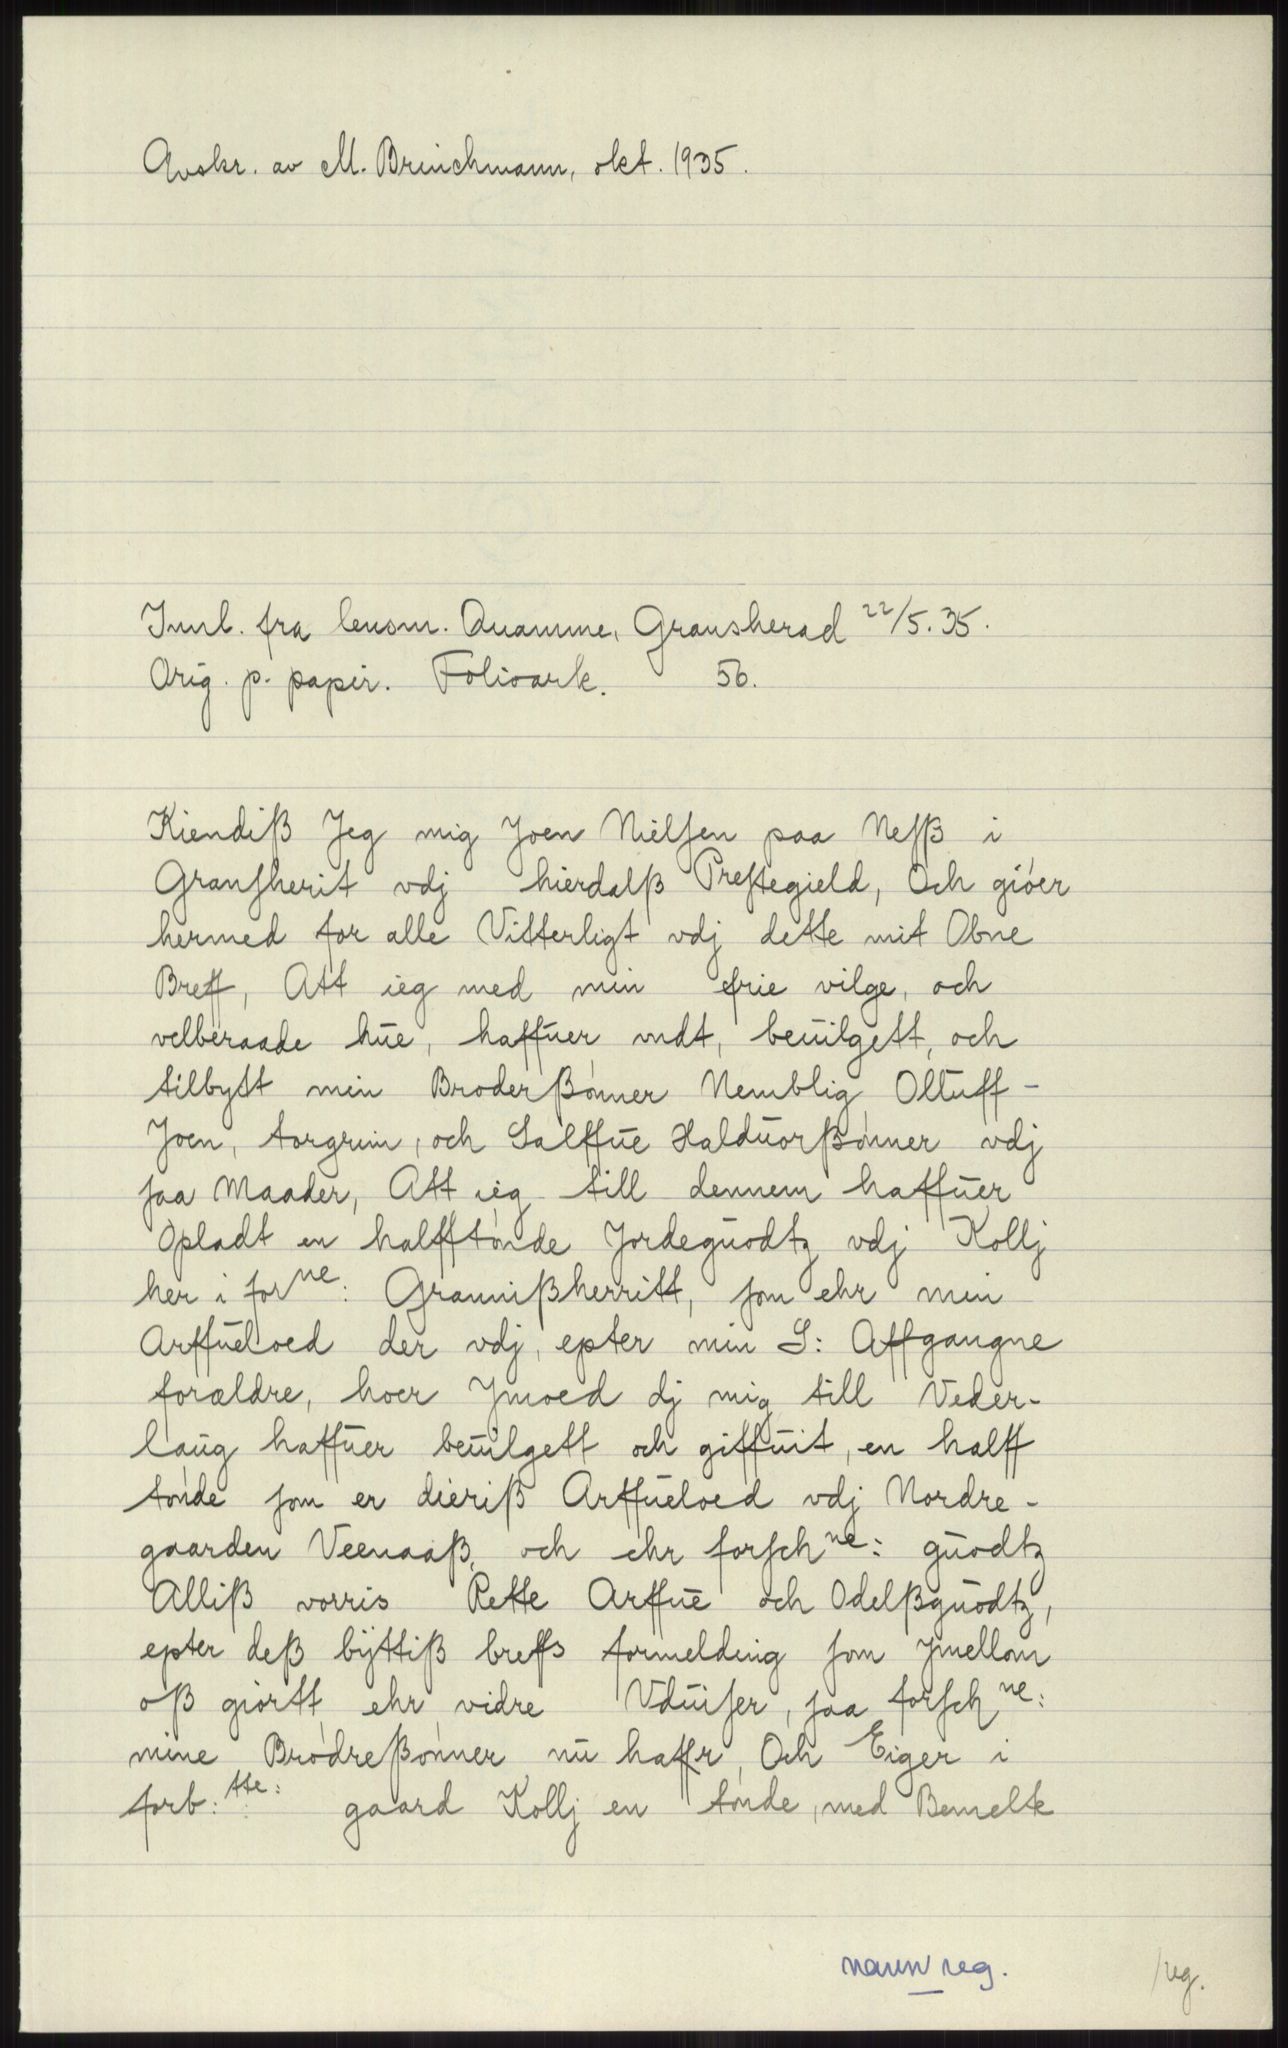 Avskr. av M. Brinchmann, okt. 1935.
Innl. fra lensm. Quamme, Gransherad 22/5.35.
Orig. p. papir. Folioark. 56.
Kiendiß Jeg mig Joen Nielsen paa Nesß i
Gransherit vdj hierdalß Prestegield, Och giöer
hermed for alle Vitterligt vdj dette mit Obne
Breff, Att ieg med min frie vilge, och
velberaade hue, haffuer vndt, beuilgett, och
tilbytt min Broderßönner Nemblig Olluff -
Joen, torgrim, och Salffue Halduorßönner vdj
saa Maader, Att ieg till dennem haffuer
Opladt en halfftönde Jordeguodtz vdj Kollj
her i forne: Grannißherritt, som ehr min
Arffueloed der vdj, epter min S: Affgangne
forældre, hoer Jmoed dj mig till Veder-
laug haffuer beuilgett och giffuit, en halff
tönde som er dieriß Arffueloed vdj Nordre-
gaarden Veenaaß, och ehr forschne: guodtz
Alliß vorris Rette Arffue och Odelßguodtz,
epter deß byttiß breffs formelding som Jmellom
oß giörtt ehr vidre Vduiser, saa forschne:
mine Brodreßönner nu haffr, Och Eiger i
forb:tte: gaard Kollj en tönde, med Bemelte
navnreg.
reg.